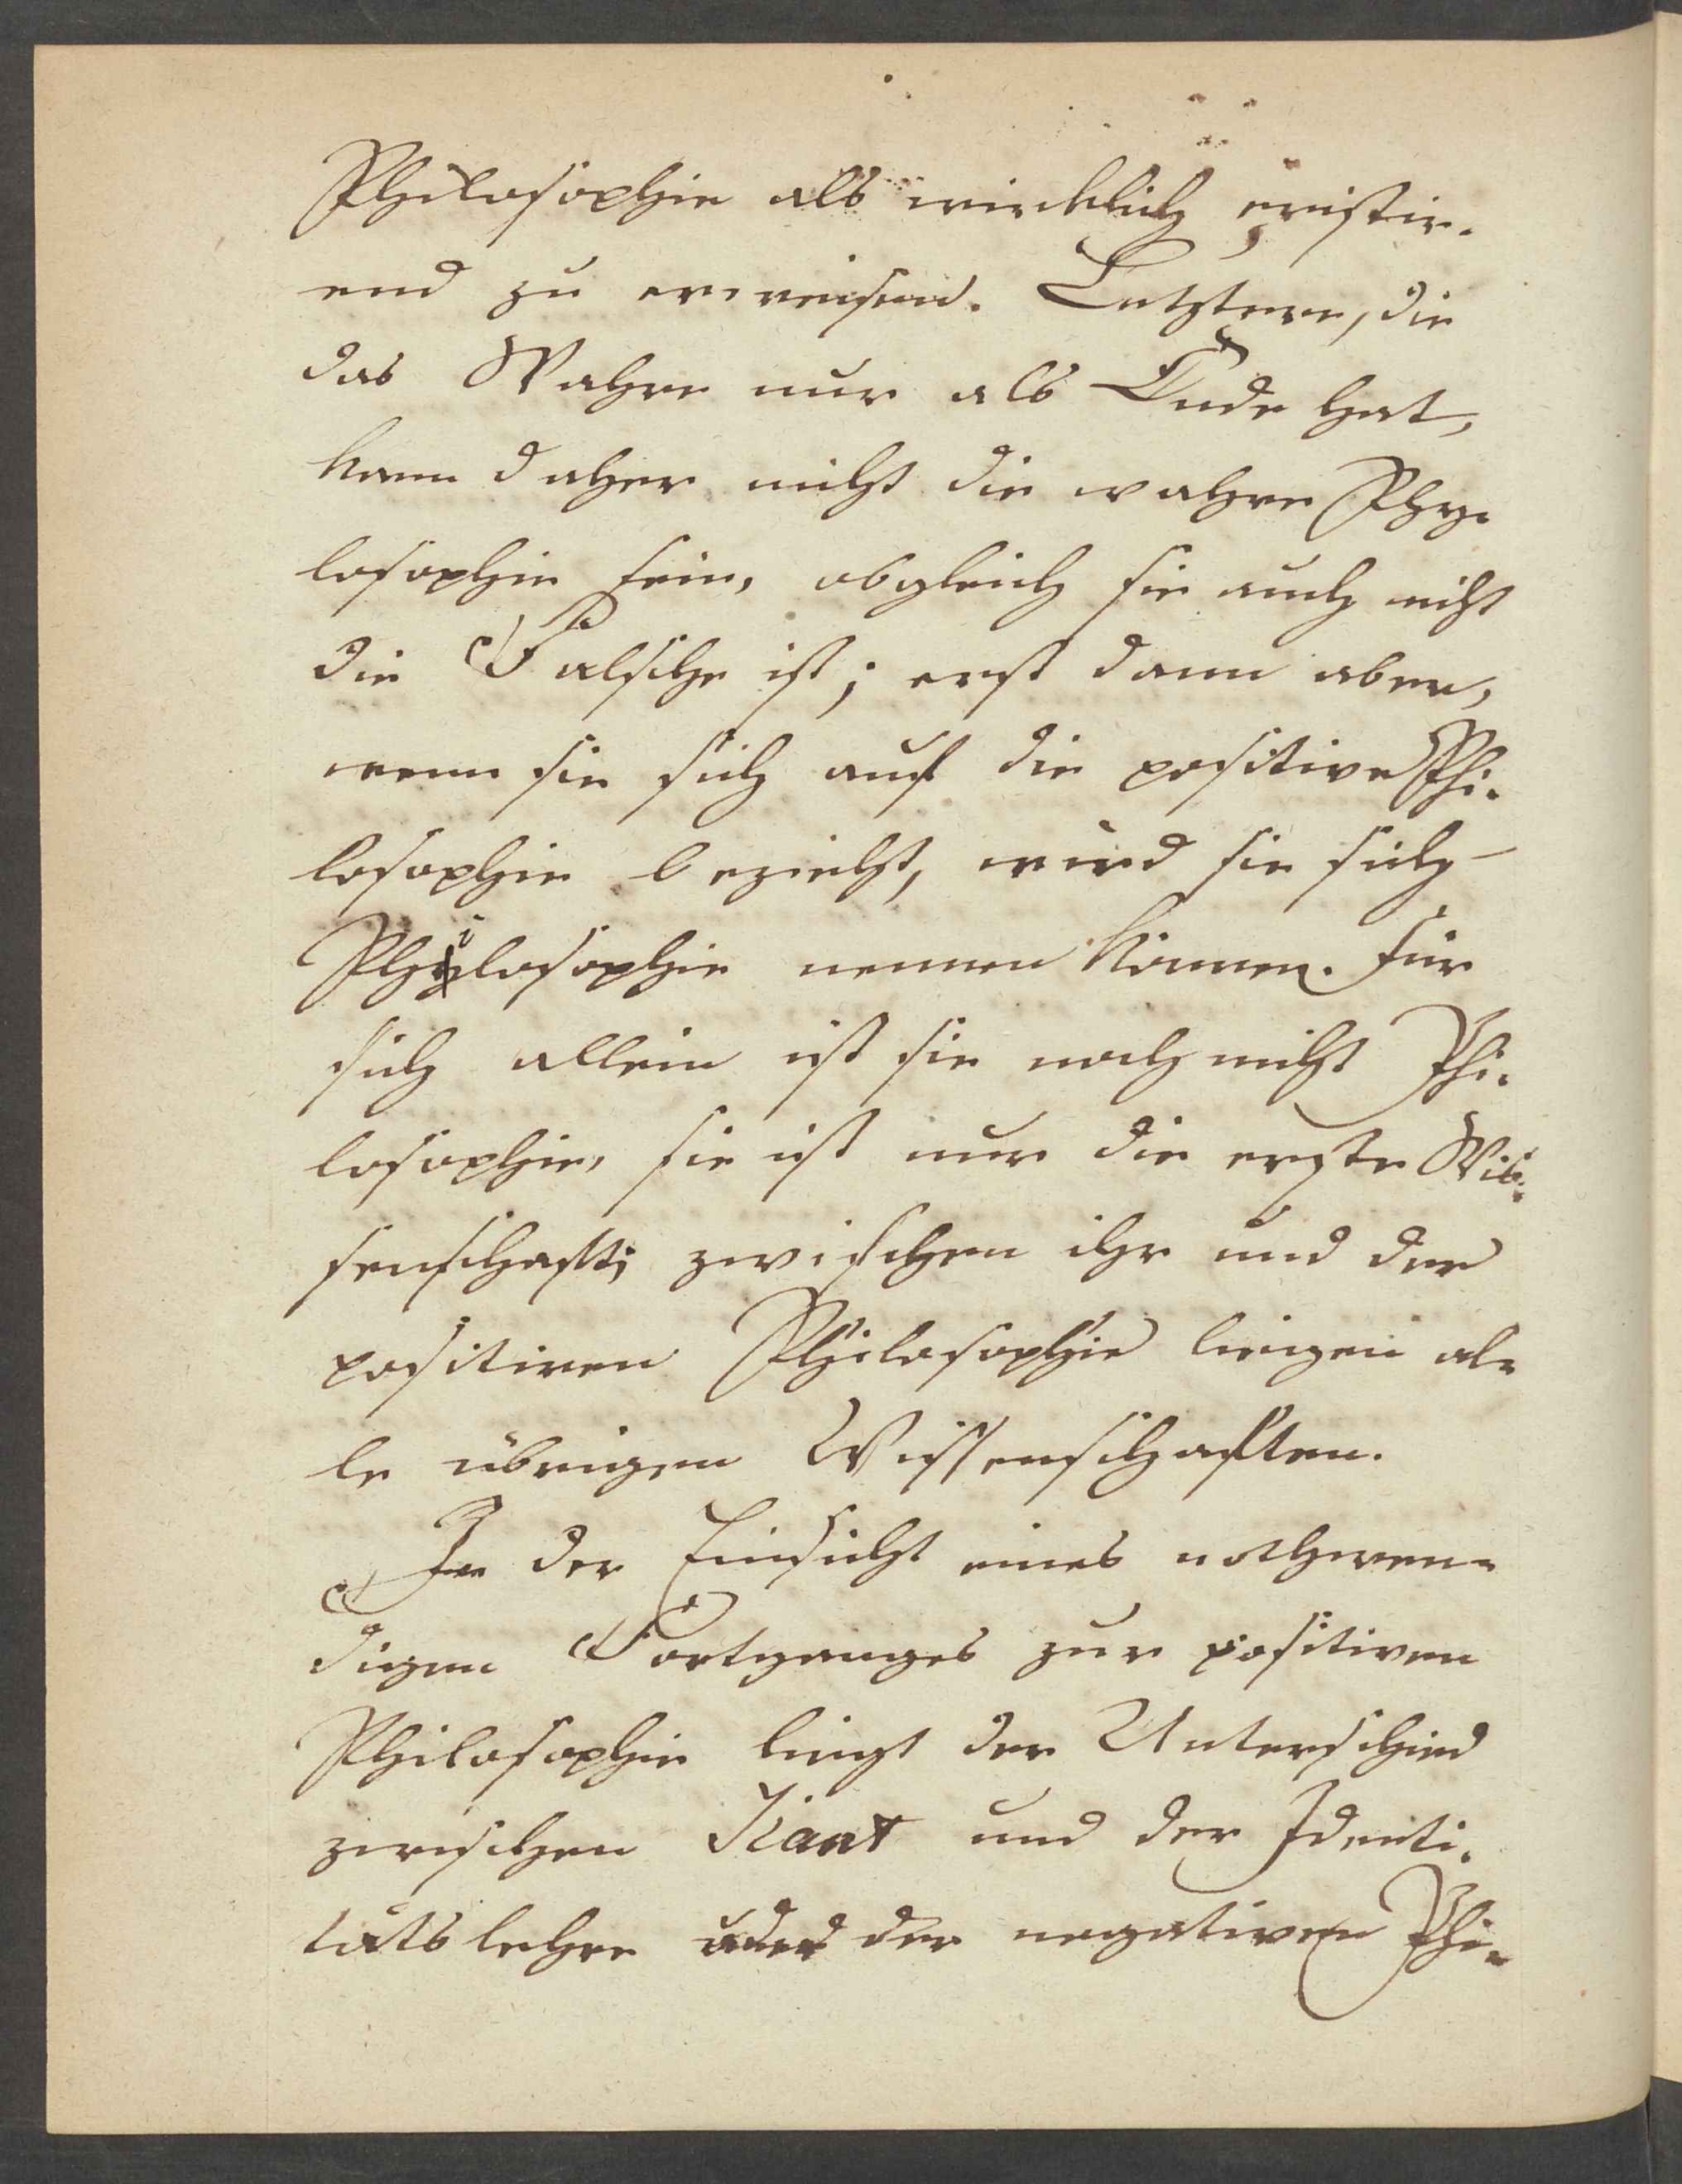 Philosophie als wircklich existir-
end zu erweisend. Letztere, die
das Wahre nur als Ende hat,
kann daher nicht die wahre Phy-
losophie sein, obgleich sie auch nicht
die Falsche ist; erst dann aber,
wenn sie sich auf die positive Phi-
losophie bezieht, wird sie sich
Philosophie nennen können. Für
sich allein ist sie noch nicht Phi-
losophie, sie ist nur die erste Wis-
senschaft; zwischen ihr und der
positiven Philosophie liegen al-
le übrigen Wissenschaften.
In der Einsicht eines nothwen-
digen Fortganges zur positiven
Philosophie liegt der Unterschied
zwischen Kant und der Identi-
tätslehre oder der negativen Phi-